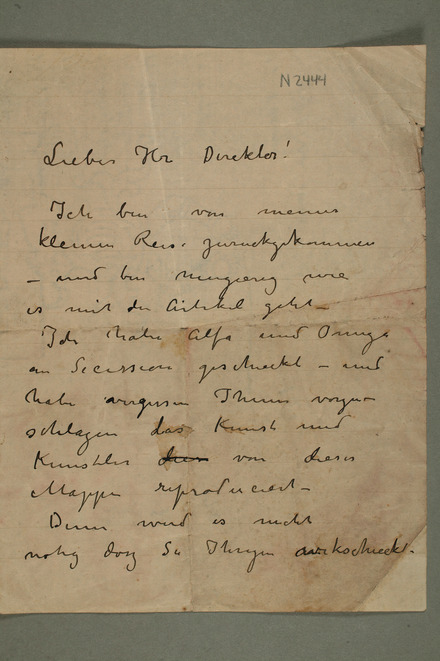 N 2444
Lieber Hr Direktor!
Ich bin von meiner
kleinen Reise zurückgekommen
– und bin neugierig wie
es mit den Artikel geht –
Ich habe Alfa und Omega
an Secession geschickt – und
habe vergessen Ihnen vorzu–
schlagen das Kunst und
Künstler von dieser
Mappen reproduciert –
Denn wird es nicht
nötig das Sie Ihrigen